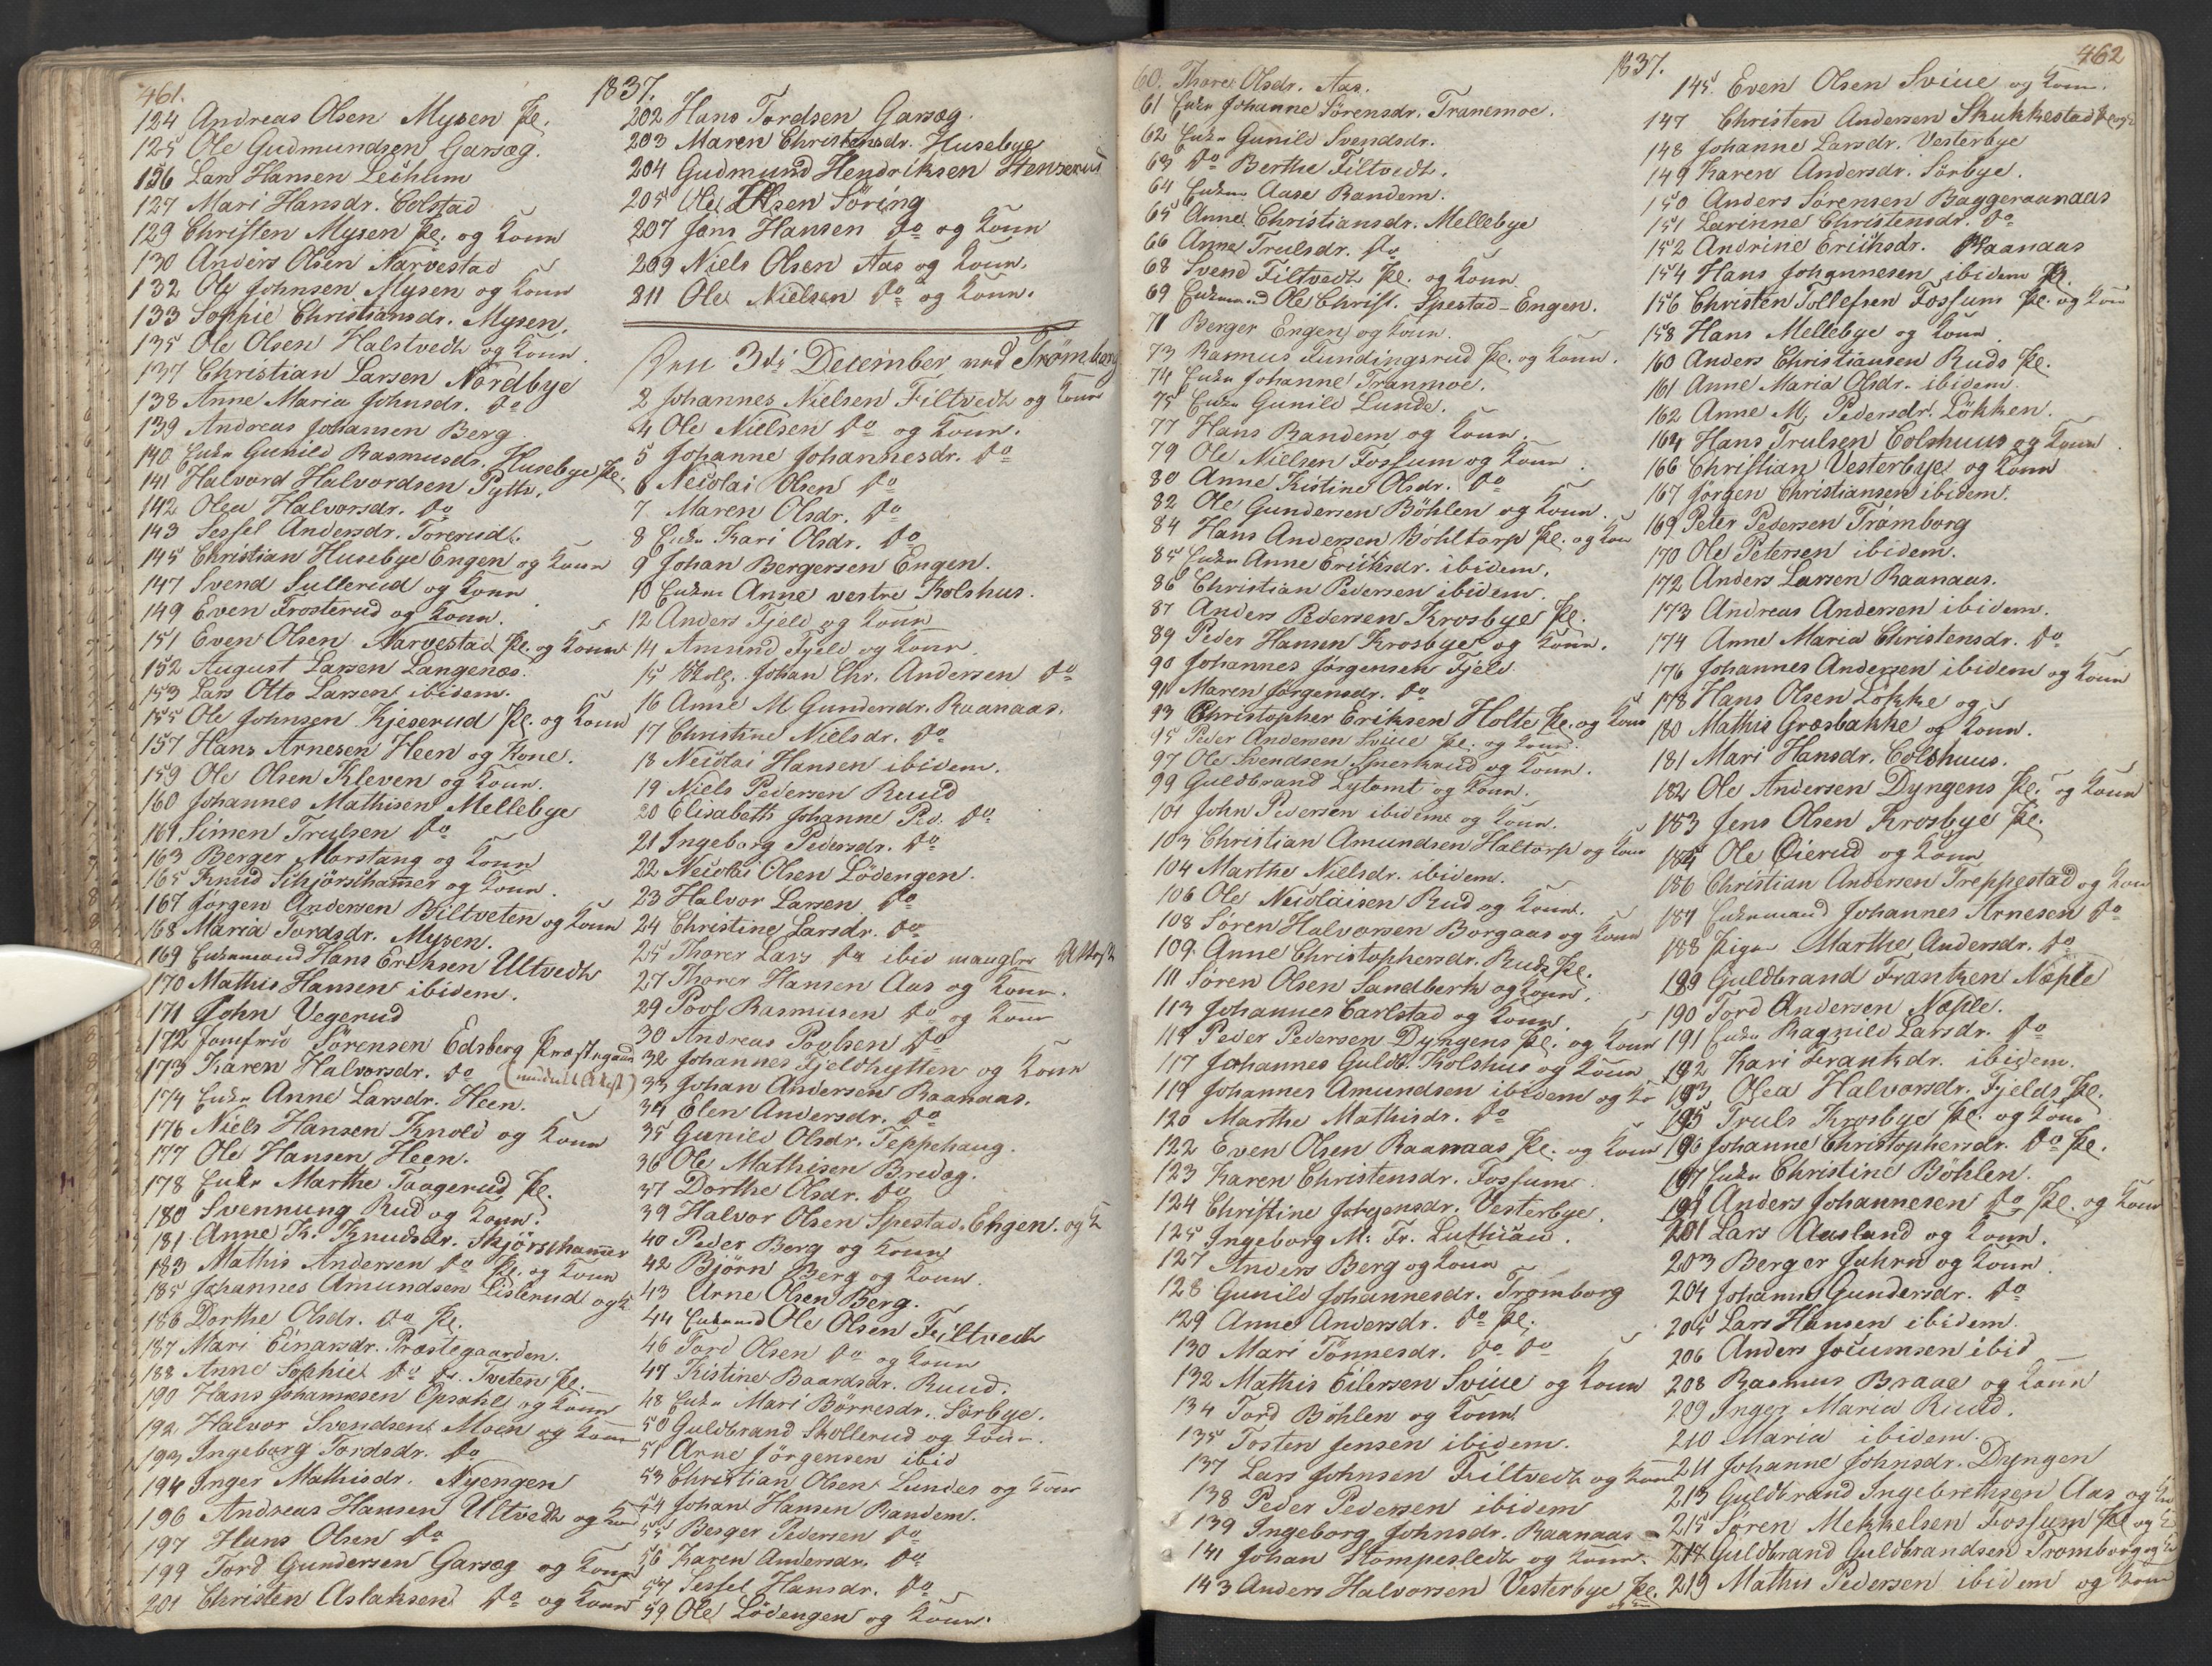 461.
1837.
124 Andreas Olsen Mysen Pl.
125 Ole Gudmundsen Garseg.
126 Lars Hansen Leikum
127 Mari Hansdr. Colstad
129 Christen Mysen Pl. og Kone
130 Anders Olsen Narvestad
132 Ole Johnsen Mysen og Kone
133 Sophie Christiansdr. Mysen.
135 Ole Olsen Halstvedt og Kone.
137 Christian Larsen Nordbye
138 Anne Maria Johnsdr. do
139 Andreas Johansen Berg
140 Enke Gunild Rasmusdr. Husebye Pl.
141 Halvord Halvordsen Pytt.
142 Olea Halvorsdr. do
143 Sessel Andersdr. Torerud.
145 Christian Husebye Engen og Kone
147 Svend Sullerud og Kone
149 Even Frosterud og Kone.
151 Even Olsen Narvestad Pl. og Kone
152 August Larsen Langenæs.
153 Lars Otto Larsen ibidem.
155 Ole Johnsen Kjeserud Pl. og Kone
157 Hans Arnesen Heen og Kone.
159 Ole Olsen Kleven og Kone.
160 Johannes Mathisen Mellebye
161 Simen Trulsen do
163 Berger Morstang og Kone
165 Knud Schjørshammer og Kone.
167 Jørgen Andersen Biltveten og Kone
168 Maria Tordsdr. Mysen.
169 Enkemand Hans Eriksen Ultvedt
170 Mathis Hansen ibidem.
171 John Vegerud
172 Jomfru Sørensen Edsberg Præstegaard
173 Karen Halvorsdr. do
174 Enke Anne Larsdr. Heen.
176 Niels Hansen Knold og Kone
177 Ole Hansen Heen.
178 Enke Marthe Taagerud Pl.
180 Svennung Rud og Kone.
181 Anne K. Knudsdr. Skjørshammer
183 Mathis Andersen do Pl. og Kone
185 Johannes Amundsen Lislerud og K.
186 Dorthe Olsdr. do Pl.
187 Mari Einarsdr. Præstegaarden.
188 Anne Sophie do Tveten Pl.
190 Hans Johannesen Opsahl og Kone
192 Halvor Svendsen Moen og Kone
193 Ingeborg Tordsdr. do
194 Inger Mathisdr. Nyengen
196 Andreas Hansen Ultvedt og Kone
197 Hans Olsen do
199 Tord Gundersen Garseg og Kone
201 Christen Aslaksen do og Kone
202 Hans Tordsen Garseg.
203 Maren Christensdr. Husebye
204 Gudmund Hendriksen Stenserud
205 Ole Olsen Söring
207 Jens Hansen do og Kone
209 Niels Olsen Aas og Kone.
211 Ole Nielsen do og Kone.
Den 3die December ved Trømborg
2 Johannes Nielsen Filtvedt og Kone
4 Ole Nielsen do og Kone.
5 Johanne Johannesdr. do
6 Nicolai Olsen do
7 Maren Olsdr. do
8 Enke Kari Olsdr. do
9 Johan Bergersen Engen.
10 Enken Anne vestre Kolshus.
12 Anders Fjeld og Kone
14 Amund Fjeld og Kone.
15 Johan Chr. Andersen do
16 Anne M Gundersdr. Raanaas.
17 Christine Nielsdr. do
18 Nicolai Hansen ibidem.
19 Niels Pedersen Ruud
20 Elisabeth Johanne Ped. do
21 Ingeborg Pedersdr. do
22 Nicolai Olsen Lödengen.
23 Halvor Larsen do
24 Christine Larsdr. do
25 Thorer Lars do ibid mangler Attest
27 Thorer Hansen Aas og Kone.
29 Povl Rasmusen do og Kone
30 Andreas Povlsen do
32 Johannes Fjeldhytten og Kone
33 Johan Andersen Raanaas.
34 Elen Andersdr. do
35 Gunild Olsdr. Teppehaug.
36 Ole Mathisen Bredag.
37 Dorthe Olsdr. do
39 Halvor Olsen Spestad-Engen. og K
40 Peder Berg og Kone
42 Bjørn Berg og Kone.
43 Arne Olsen Berg.
44 Enkemd Ole Olsen Filtvedt
46 Tord Olsen do og Kone
47 Kistine Baardsdr. Ruud.
48 Enke Mari Børresdr. Sørbye.
50 Guldbrand Skollerud og Kone.
51 Arne Jörgensen ibid
53 Christian Olsen Lunder og Kone
54 Johan Hansen Randem.
55 Berger Pedersen do
56 Karen Andersdr. do
57 Sessel Hansdr. do
59 Ole Lödengen og Kone.
1837.
462
60. Thore Olsdr. Aas.
61 Enke Johanne Sörensdr. Tranemoe.
62 Enke Gunild Svendsdr.
63 do Berthe Filtvedt.
64 Enken Aase Randem.
65 Anne Christiansdr. Mellebye
66 Anne Trulsdr. do
68 Svend Filtvedt Pl. og Kone
69 Enkemand Ole Christ. Spestad-Engen.
71 Berger Engen og Kone.
73 Rasmus Fundingsrud Pl. og Kone.
74 Enke Johanne Tranmoe.
75 Enke Gunild Lunde.
77 Hans Randem og Kone.
79 Ole Nielsen Fossum og Kone.
80 Anne Kistine Olsdr. do
82 Ole Gundersen Böhlen og Kone.
84 Hans Andersen Böhltorp Pl. og Kone
85 Enke Anne Eriksdr. ibidem.
86 Christian Pedersen ibidem.
87 Anders Pedersen Krosbye Pl.
89 Peder Hansen Krosbye og Kone.
90 Johannes Jørgensen Fjeld
91 Maren Jørgensdr. do
93 Christopher Eriksen Holte Pl. og Kone
95 Peder Andersen Sviue Pl. og Kone.
97 Ole Svendsen Smerkrud og Kone.
99 Guldbrand Lytomt og Kone.
101 John Pedersen ibidem og Kone.
103 Christian Amundsen Haltorp og Kone
104 Marthe Nielsdr. ibidem.
106 Ole Nicolaisen Rud og Kone.
108 Søren Halvorsen Borgaas og Kone
109. Anne Christophersdr. Ruds Pl.
111 Søren Olsen Sandberk og Kone.
113 Johannes Carlstad og Kone.
114 Peder Pedersen Dyngens Pl. og Kone
117 Johannes Guldb. Kolshus og Kone
119 Johannes Amundsen ibidem og K
120 Marthe Mathisdr. do
122 Even Olsen Raanaas Pl. og Kone
123 Karen Christensdr. Fossum.
124 Christine Jørgensdr. Vesterbye.
125 Ingeborg M: Fr.
127 Anders Berg og Kone
128 Gunild Johannesdr. Trømborg
129 Anne Andersdr. do Pl.
130 Mari Tønnesdr. do do
132 Mathis Eilersen Sviue og Kone
134 Tord Böhlen og Kone
135 Tosten Jensen ibidem.
137 Lars Johnsen Filtvedt og Kone
138 Peder Pedersen ibidem
139 Ingeborg Johnsdr. Raanaas
141 Johan Stompesledt og Kone.
143 Anders Halvorsen Vesterbye Pl.
145 Even Olsen Sviue og Kone.
147 Christen Andersen Skukkestad Pl og K
148 Johanne Larsdr. Vesterbye
149 Karen Andersdr. Sörbye.
150 Anders Sørensen Baggeraanaas
151 Larinne Christensdr. do
152 Andrine Eriksdr. Raanaas
154 Hans Johannesen ibidem Pl.
156 Christen Tollefsen Fossum Pl. og Kone
158 Hans Mellebye og Kone
160 Anders Christiansen Ruds Pl.
161 Anne Maria Olsdr. ibidem.
162 Anne M. Pedersdr. Løkken.
164 Hans Trulsen Colshuus og Kone
166 Christian Vesterbye og Kone
167 Jørgen Christiansen ibidem.
169 Peter Pedersen Trømborg
170 Ole Petersen ibidem.
172 Anders Larsen Raanaas.
173 Andreas Andersen ibidem.
174 Anne Maria Christensdr. do
176 Johannes Andersen ibidem og Kone
178 Hans Olsen Løkke og
180 Mathis Græsbakke og Kone.
181 Mari Hansdr. Colshuus.
182 Ole Andersen Dyngens Pl. og Kone
183 Jens Olsen Krosbye Pl.
185 Ole Öierud og Kone
186 Christian Andersen Treppestad og Kone
187 Enkemand Johannes Arnesen do
188 Pigen Marthe Andersdr. do
189 Guldbrand Frantzen Næple
190 Tord Andersen Næple.
191 Enke Ragnild Larsdr. do
192 Kari Frankdr. ibidem.
193. Olea Halvorsdr. Fjelds Pl.
195 Truls Krosbye Pl. og Kone
196 Johanne Christophersdr. do Pl.
197 Enke Christine Böhlen.
199 Anders Johannesen do Pl. og Kone
201 Lars Aasland og Kone.
203 Berger Jahre og Kone
204 Johanne Gundersdr. do
205 Lars Hansen ibidem.
206 Anders Jocumsen ibid
208 Rasmus Braae og Kone
209 Inger Maria Ruud.
210 Maria ibidem.
211 Johanne Johnsdr. Dyngen
213 Guldbrand Ingebrethsen Aas og K
215 Søren Mekkelsen Fossum Pl og K
217 Guldbrand Guldbrandsen Trømborg og K
219 Mathis Pedersen ibidem og Kone